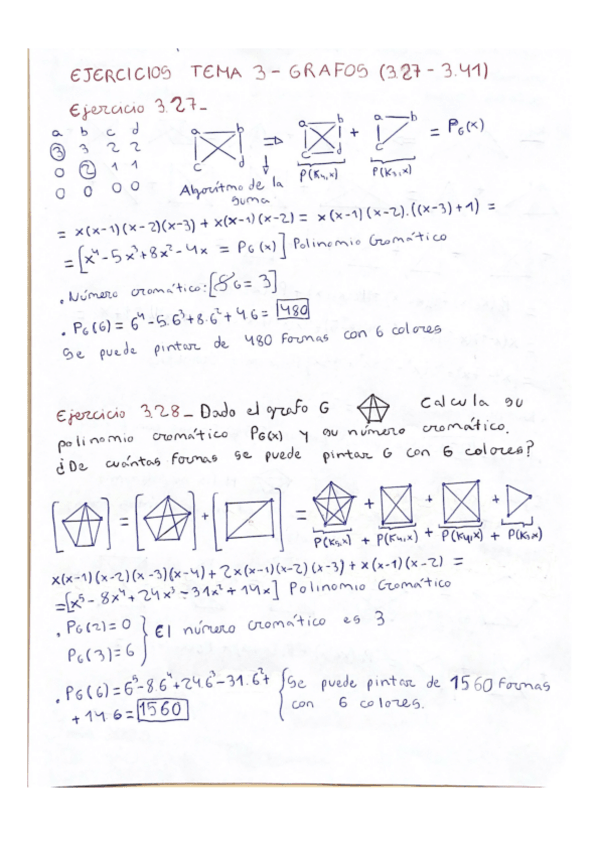 EJERCICIOS TEMA 3 - GRAFOS (3.27 - 3.41)
Ejercicio 3.27_
a b c d
3 3 2 2
0 2 1 1
0 0 0 0
a b c d
Algoritmo de la suma
⇒
a b c d
P(K₄,x)
+
a b c
P(K₃,x)
= P_G(x)
= x(x-1)(x-2)(x-3) + x(x-1)(x-2) = x(x-1)(x-2).((x-3)+1) =
= [x⁴-5x³+8x²-4x = P_G(x)] Polinomio Cromático
. Número cromático: [δG = 3]
. P_G(6) = 6⁴-5.6³+8.6²+4.6 = 480
Se puede pintar de 480 formas con 6 colores
Ejercicio 3.28_ Dado el grafo G Calcula su
polinomio cromático P_G(x) y su número cromático.
¿De cuántas formas se puede pintar G con 6 colores?
[ ] = [ ] + [ ] = + + +
P(K₅,x) + P(K₄,x) + P(K₄,x) + P(K₃,x)
x(x-1)(x-2)(x-3)(x-4) + 2x(x-1)(x-2)(x-3) + x(x-1)(x-2) =
= [x⁵-8x⁴+24x³-31x²+14x] Polinomio Cromático
. P_G(2) = 0
P_G(3) = 6
} El número cromático es 3
. P_G(6) = 6⁵-8.6⁴+24.6³-31.6²+
+14.6 = 1560
{ Se puede pintar de 1560 formas
con 6 colores.